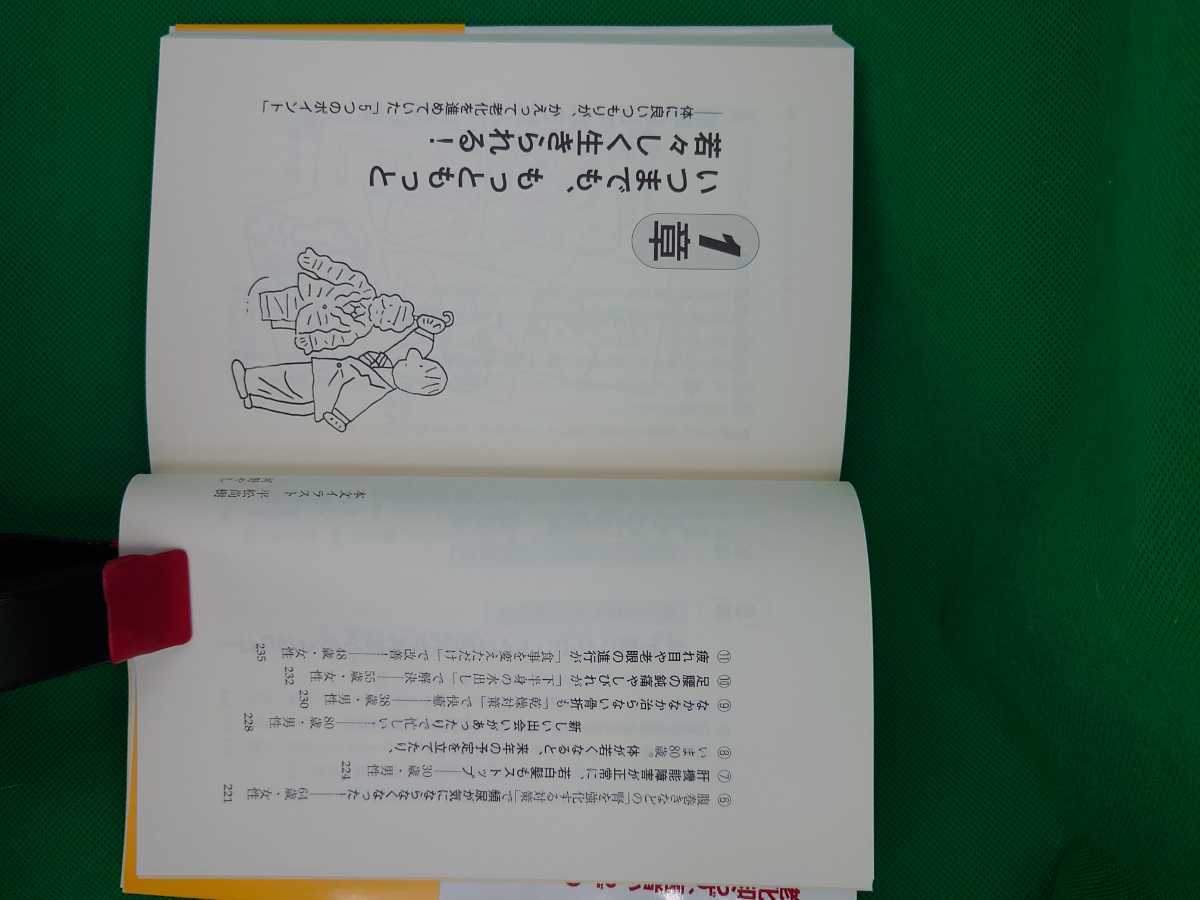 ⑥ 腹巻きなどの「腎を強化する対策」で頻尿が気にならなくなった!――64歳・女性 221
⑦ 肝機能障害が正常に、若白髪もストップ――30歳・男性 224
⑧ いま80歳。体が若くなると、来年の予定を立てたり、
新しい出会いがあったりで忙しい!――80歳・男性 228
⑨ なかなか治らない骨折も「乾燥対策」で快癒――38歳・男性 230
⑩ 足腰の鈍痛やしびれが「下半身の水出し」で解決――55歳・女性 232
⑪ 疲れ目や老眼の進行が「食事を変えただけ」で改善!――48歳・女性 235
本文イラスト 平松尚樹
1章
いつまでも、もっともっと
若々しく生きられる!
――体に良いつもりが、かえって老化を進めていた「5つのポイント」